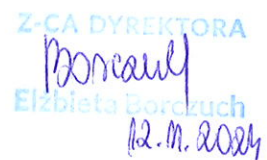 Z-CA DYREKTORA
Borczuch
Elżbieta Borczuch
12.11.2024